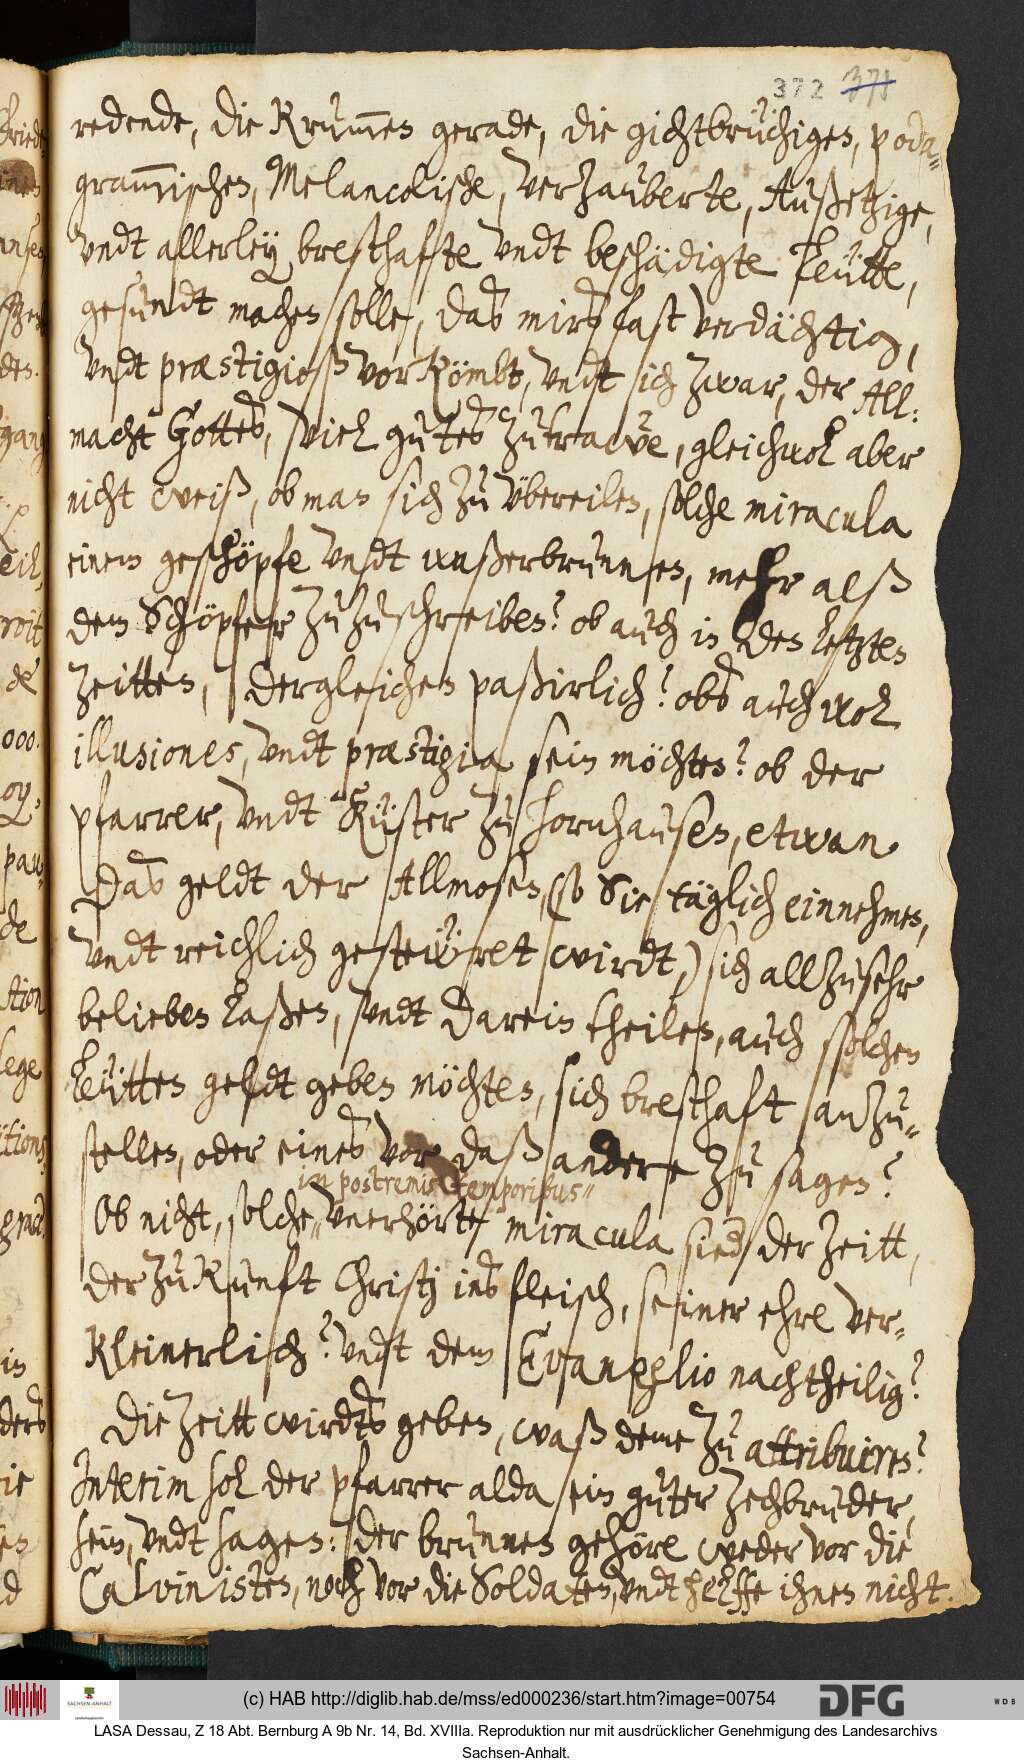 372 371
redende, die Krum̅en gerade, die gichtbrüchigen, poda-
gram̅ischen, Melancolische, verzauberte, Außetzige,
undt allerley bresthaffte undt beschädigte Leütte,
gesundt machen solle, das mirs fast verdächtig,
undt præstigioß vorkömbt, undt ich zwar, der All:
macht Gottes, viel gutes zutrawe, gleichwol aber
nicht weiß, ob man sich zu übereilen, solche miracula
einem geschöpfe undt waßerbrunnen, mehr alß
dem Schöpfer zuzuschreiben? ob auch in den letzten
Zeitten, dergleichen paßirlich? obs auch wol
illusiones, undt præstigia sein möchten? ob der
pfarrer, undt Küster zu Hornhausen, etwan
das geldt der Allmosen, (so Sie täglich einnehmen,
undt reichlich gestewret wirdt,) sich allzusehr
belieben laßen, undt darein theilen, auch solchen
Leütten geldt geben möchten, sich bresthaft anzu-
stellen, oder eines vor daß andere zu sagen?
in postremis temporibus
Ob nicht, solche unerhörte miracula sieder der Zeitt,
der Zukunft Christj ins fleisch, seiner ehre ver-
kleinerlich? undt dem Evangelio nachtheilig?
Die Zeitt wirdts geben, waß deme zu attribuiren?
Interim sol der pfarrer alda ein guter Zechbruder,
sein, undt sagen: der brunnen gehöre weder vor die
Calvinisten, noch vor die Soldaten, undt helffe ihnen nicht.
ders
de
(c) HAB http://diglib.hab.de/mss/ed000236/start.htm?image=00754
SACHSEN-ANHALT
DFG
WDB
LASA Dessau, Z 18 Abt. Bernburg A 9b Nr. 14, Bd. XVIIIa. Reproduktion nur mit ausdrücklicher Genehmigung des Landesarchivs
Sachsen-Anhalt.